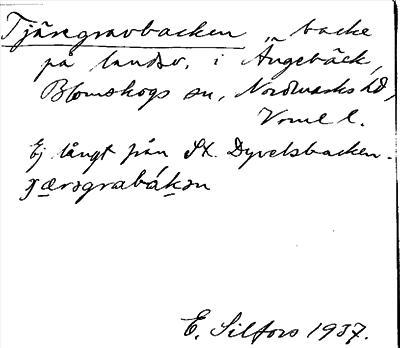 Tjäregravbacken „ backe
på landsv. i Ängebäck,
Blomskogs sn, Nordmarks hd,
Vrml l.
Ej långt från St. Dyvelsbacken.
E. Silfors 1937.